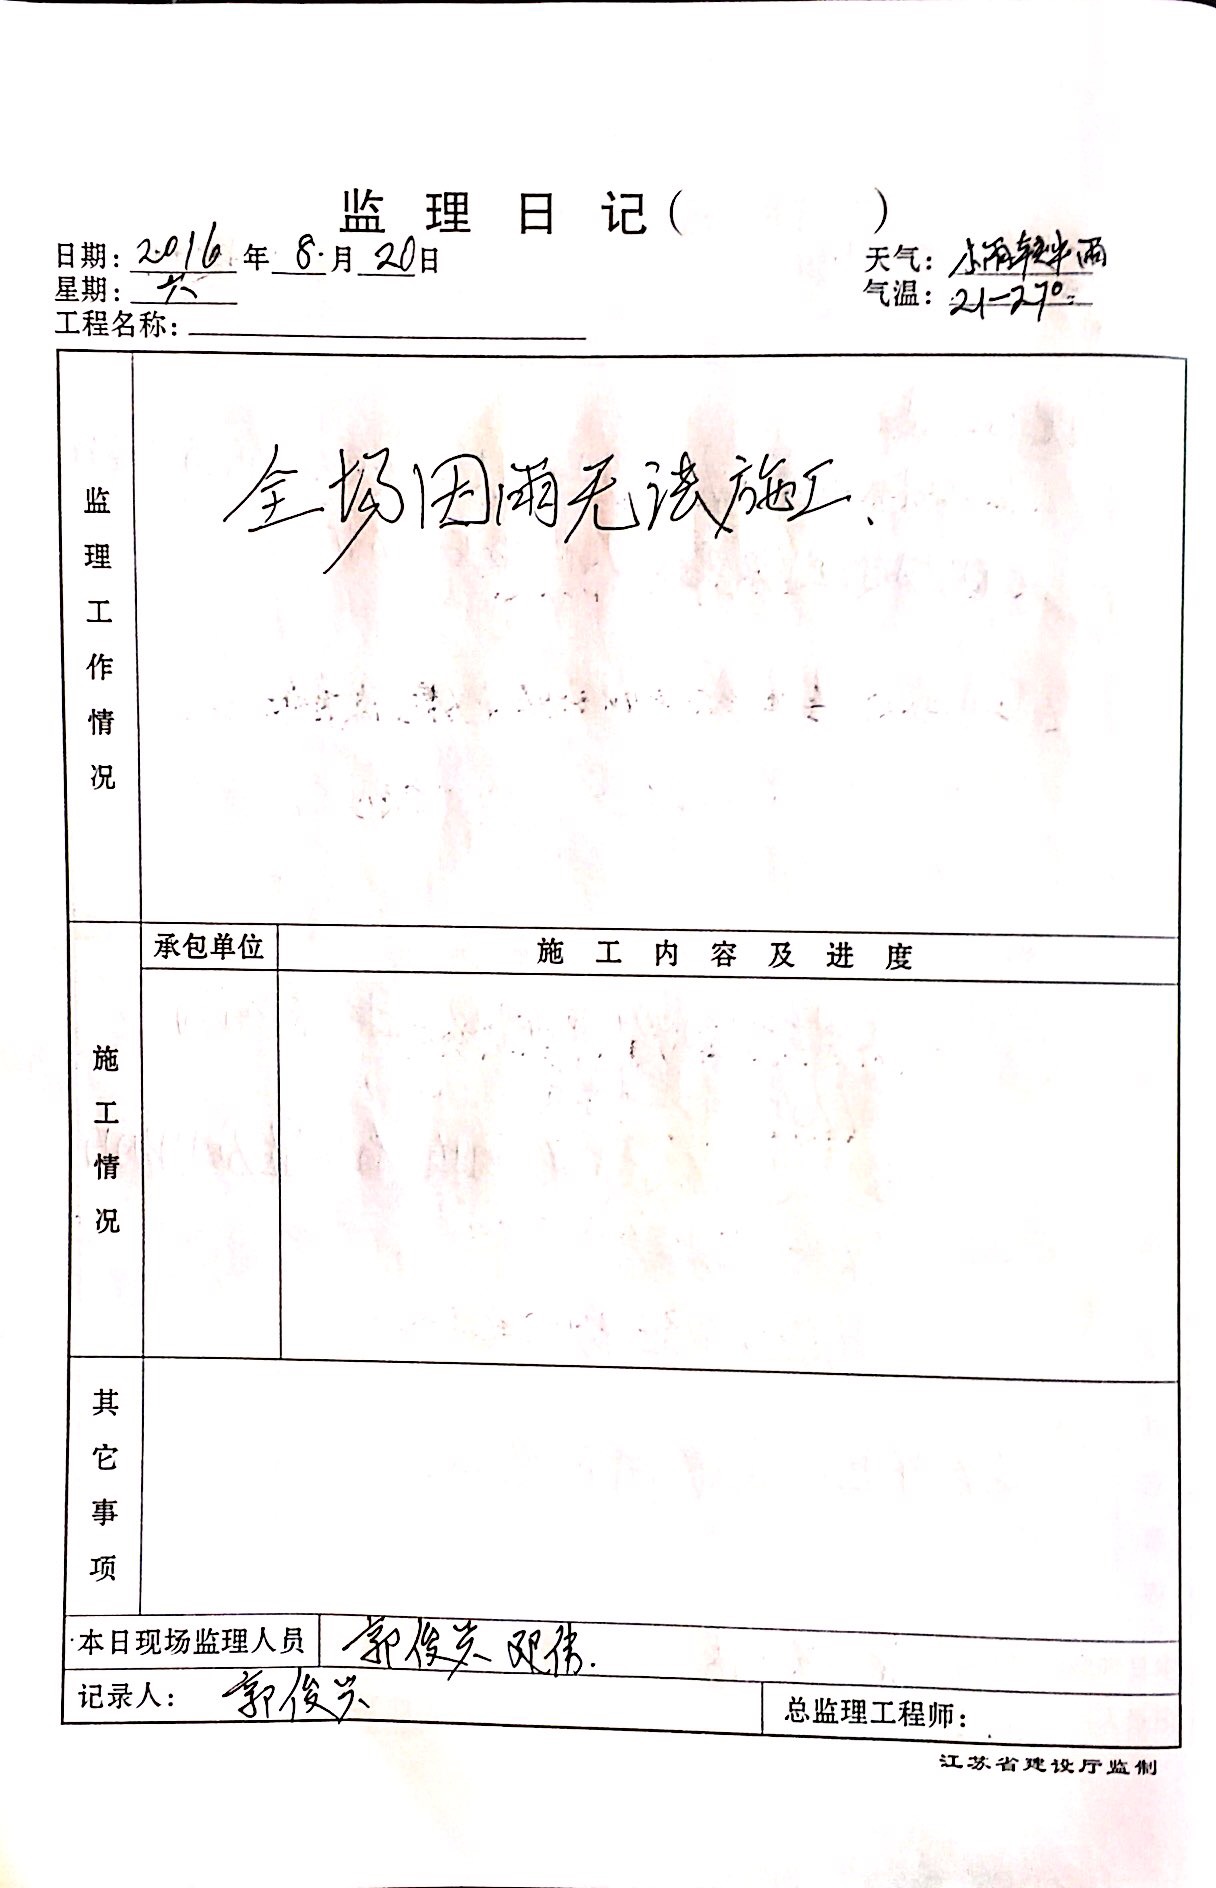 监理日记（ ）
日期：2016年8.月20日
天气：小雨转中雨
星期：六
气温：21-27°
工程名称：
监理工作情况
全场因雨无法施工.
施工情况
承包单位
施工内容及进度
其它事项
本日现场监理人员 郭俊兴 邓伟.
记录人：郭俊兴
总监理工程师：
江苏省建设厅监制